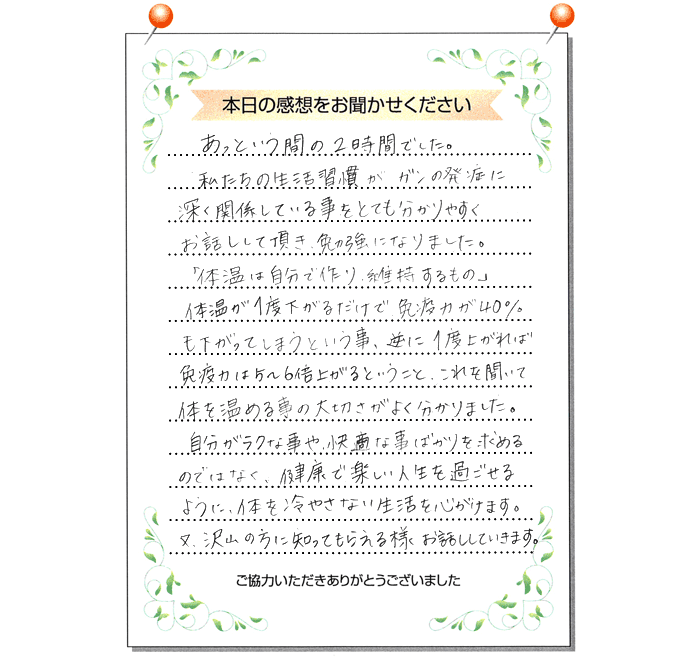 本日の感想をお聞かせください
あっという間の2時間でした。
私たちの生活習慣がガンの発症に
深く関係している事をとても分かりやすく
お話しして頂き、勉強になりました。
「体温は自分で作り、維持するもの」
体温が1度下がるだけで免疫力が40%
も下がってしまうという事、逆に1度上がれば
免疫力は5～6倍上がるということ、これを聞いて
体を温める事の大切さがよく分かりました。
自分がラクな事や、快適な事ばかりを求める
のではなく、健康で楽しい人生を過ごせる
ように、体を冷やさない生活を心がけます。
又、沢山の方に知ってもらえる様、お話ししていきます。
ご協力いただきありがとうございました